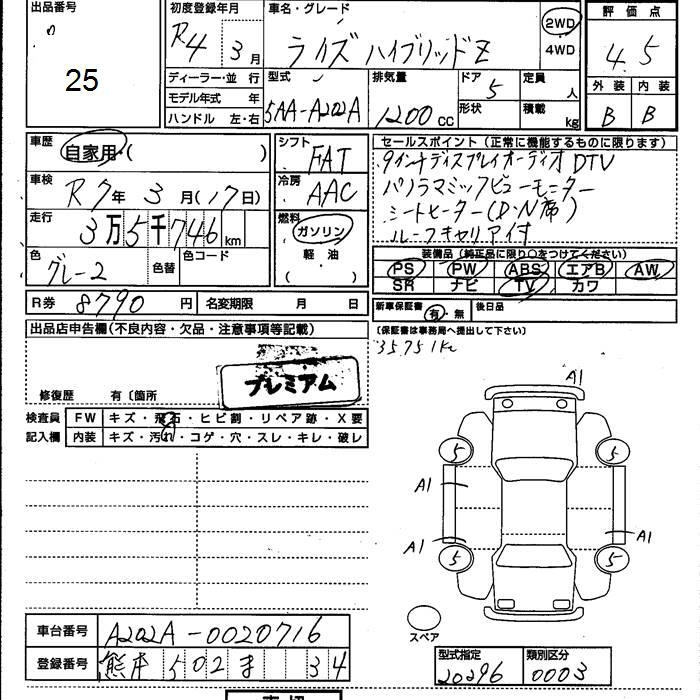 出品番号
25
初度登録年月
R4 3月
車名・グレード
ライズ ハイブリッドZ
2WD
4WD
評価点
4.5
外装 内装
B B
ディーラー・並 行
モデル年式 年
ハンドル 左・右
型式
5AA-A202A
排気量
1200 cc
ドア
5
形状
定員
人
積載
kg
車歴
自家用・( )
車検
R7年 3月(17日)
走行
3万5千746km
色
グレー2
色替
色コード
シフト
FAT
冷房
AAC
燃料
ガソリン
軽・油
( )
セールスポイント (正常に機能するものに限ります)
9インチディスプレイオーディオ DTV
パノラミックビューモニター
シートヒーター(D・N席)
ルーフキャリア付
装備品(純正品に限り○をつけてください)
PS PW ABS エアB AW
SR ナビ TV カワ
R券 8790円
名変期限 月 日
新車保証書 有・無
後日品
(保証書は事務局へ提出して下さい)
35751km
出品店申告欄(不良内容・欠品・注意事項等記載)
プレミアム
修復歴 有〔箇所
検査員記入欄
FW キズ・飛石・ヒビ割・リペア跡・X要
内装 キズ・汚れ・コゲ・穴・スレ・キレ・破レ
A1
5 5
A1
A1 A1
5 5
スペア
車台番号 A202A-0020716
登録番号 熊本 502 ま 34
型式指定 類別区分
20296 0003